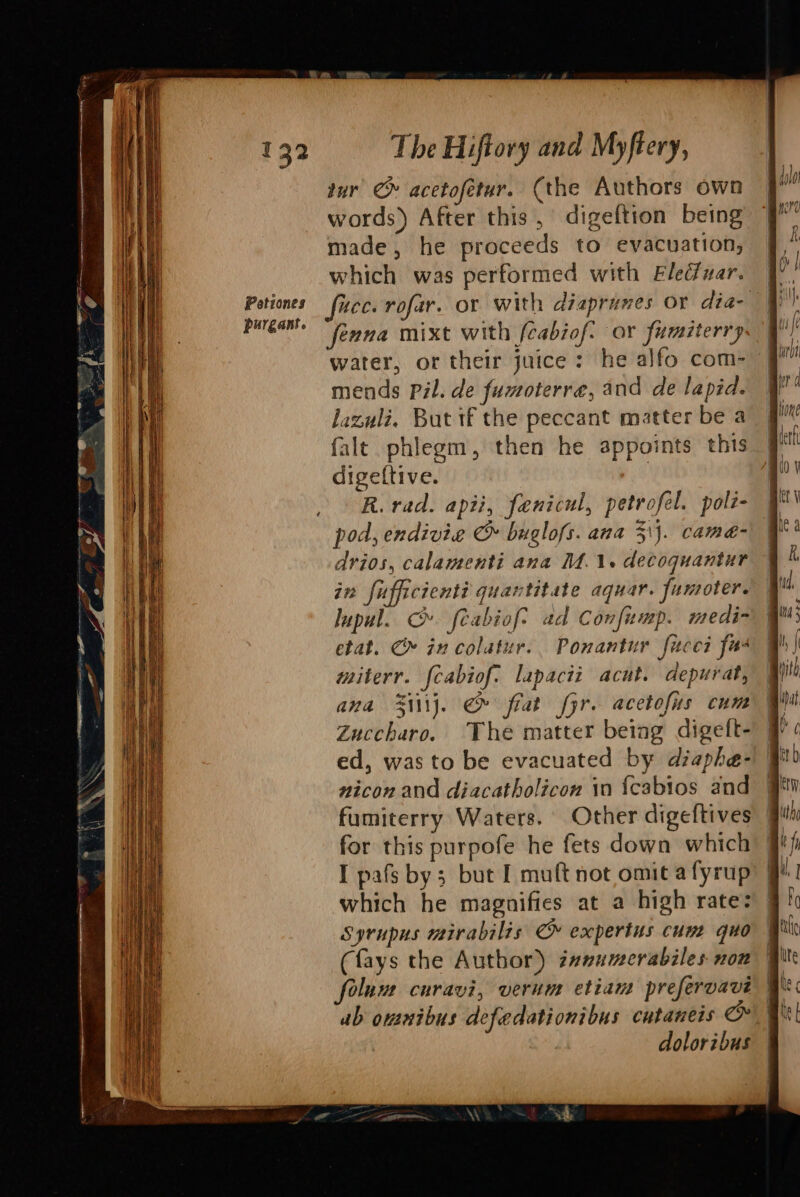 132 The Hiſtory and Myſtery,
tur & acetoſetur. (the Authors own
words) After this, digeſtion being
made, he proceeds to evacuation,
which was performed with Electuar.
Potiones purgant.
ſucc. roſar. or with diaprunes or dia-
ſenna mixt with ſcabioſ. or fumiterry.
water, or their juice: he alſo com-
mends Pil. de fumoterræ, and de lapid.
lazuli. But if the peccant matter be a
ſalt phlegm, then he appoints this
digeſtive.
R. rad. apii, fænicul, petroſel. poli-
pod, endiviæ & bugloſs. ana ℥ij. camæ-
drios, calamenti ana M. 1. decoquantur
in ſufficienti quantitate aquar. fumoter.
lupul. & ſcabioſ. ad Conſump. medi-
etat. & in colatur. Ponantur ſucci fu-
miterr. ſcabioſ. lapacii acut. depurat,
ana ℥iiij. & fiat ſyr. acetoſus cum
Zuccharo. The matter being digeſt-
ed, was to be evacuated by diaphæ-
nicon and diacatholicon in ſcabios and
fumiterry Waters. Other digeſtives
for this purpoſe he ſets down which
I paſs by; but I muſt not omit a ſyrup
which he magnifies at a high rate:
Syrupus mirabilis & expertus cum quo
(ſays the Author) innumerabiles non
ſolum curavi, verum etiam preſervavi
ab omnibus defædationibus cutaneis &
doloribus